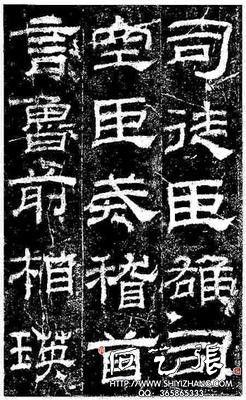 司徒臣雄司
空臣戒稽首
言魯前相瑛
HTTP://WWW.SHIYIZHANG.COM
QQ: 365865333